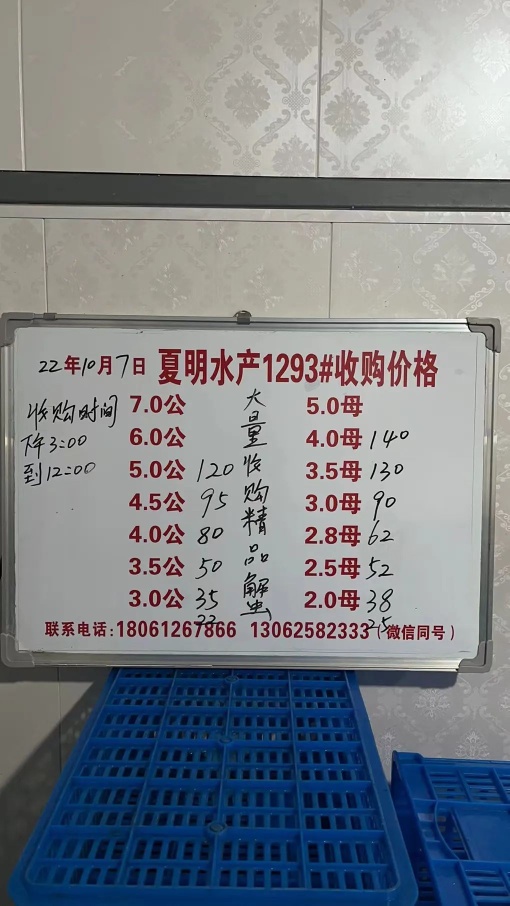 22年10月7日 夏明水产1293#收购价格
收购时间
下午3:00
到12:00
7.0公
6.0公
5.0公 120
4.5公 95
4.0公 80
3.5公 50
3.0公 35
22
大量收购精品蟹
5.0母
4.0母 140
3.5母 130
3.0母 90
2.8母 62
2.5母 52
2.0母 38
25
联系电话:18061267866 13062582333 微信同号)